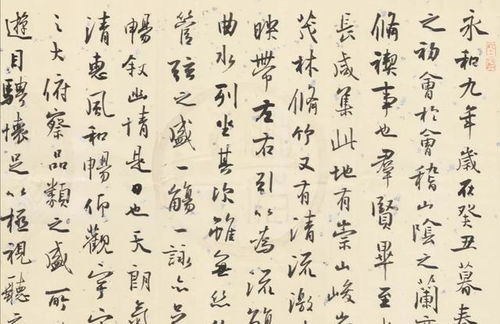 永和九年歲在癸丑暮春
之初會於會稽山陰之蘭亭
脩禊事也羣賢畢至
長咸集此地有崇山峻
茂林脩竹又有清流激
暎帶左右引以為流觴
曲水列坐其次雖無絲
管弦之盛一觴一詠亦足
暢敘幽情是日也天朗氣
清惠風和暢仰觀宇
之大俯察品類之盛所
遊目騁懷足以極視聽之